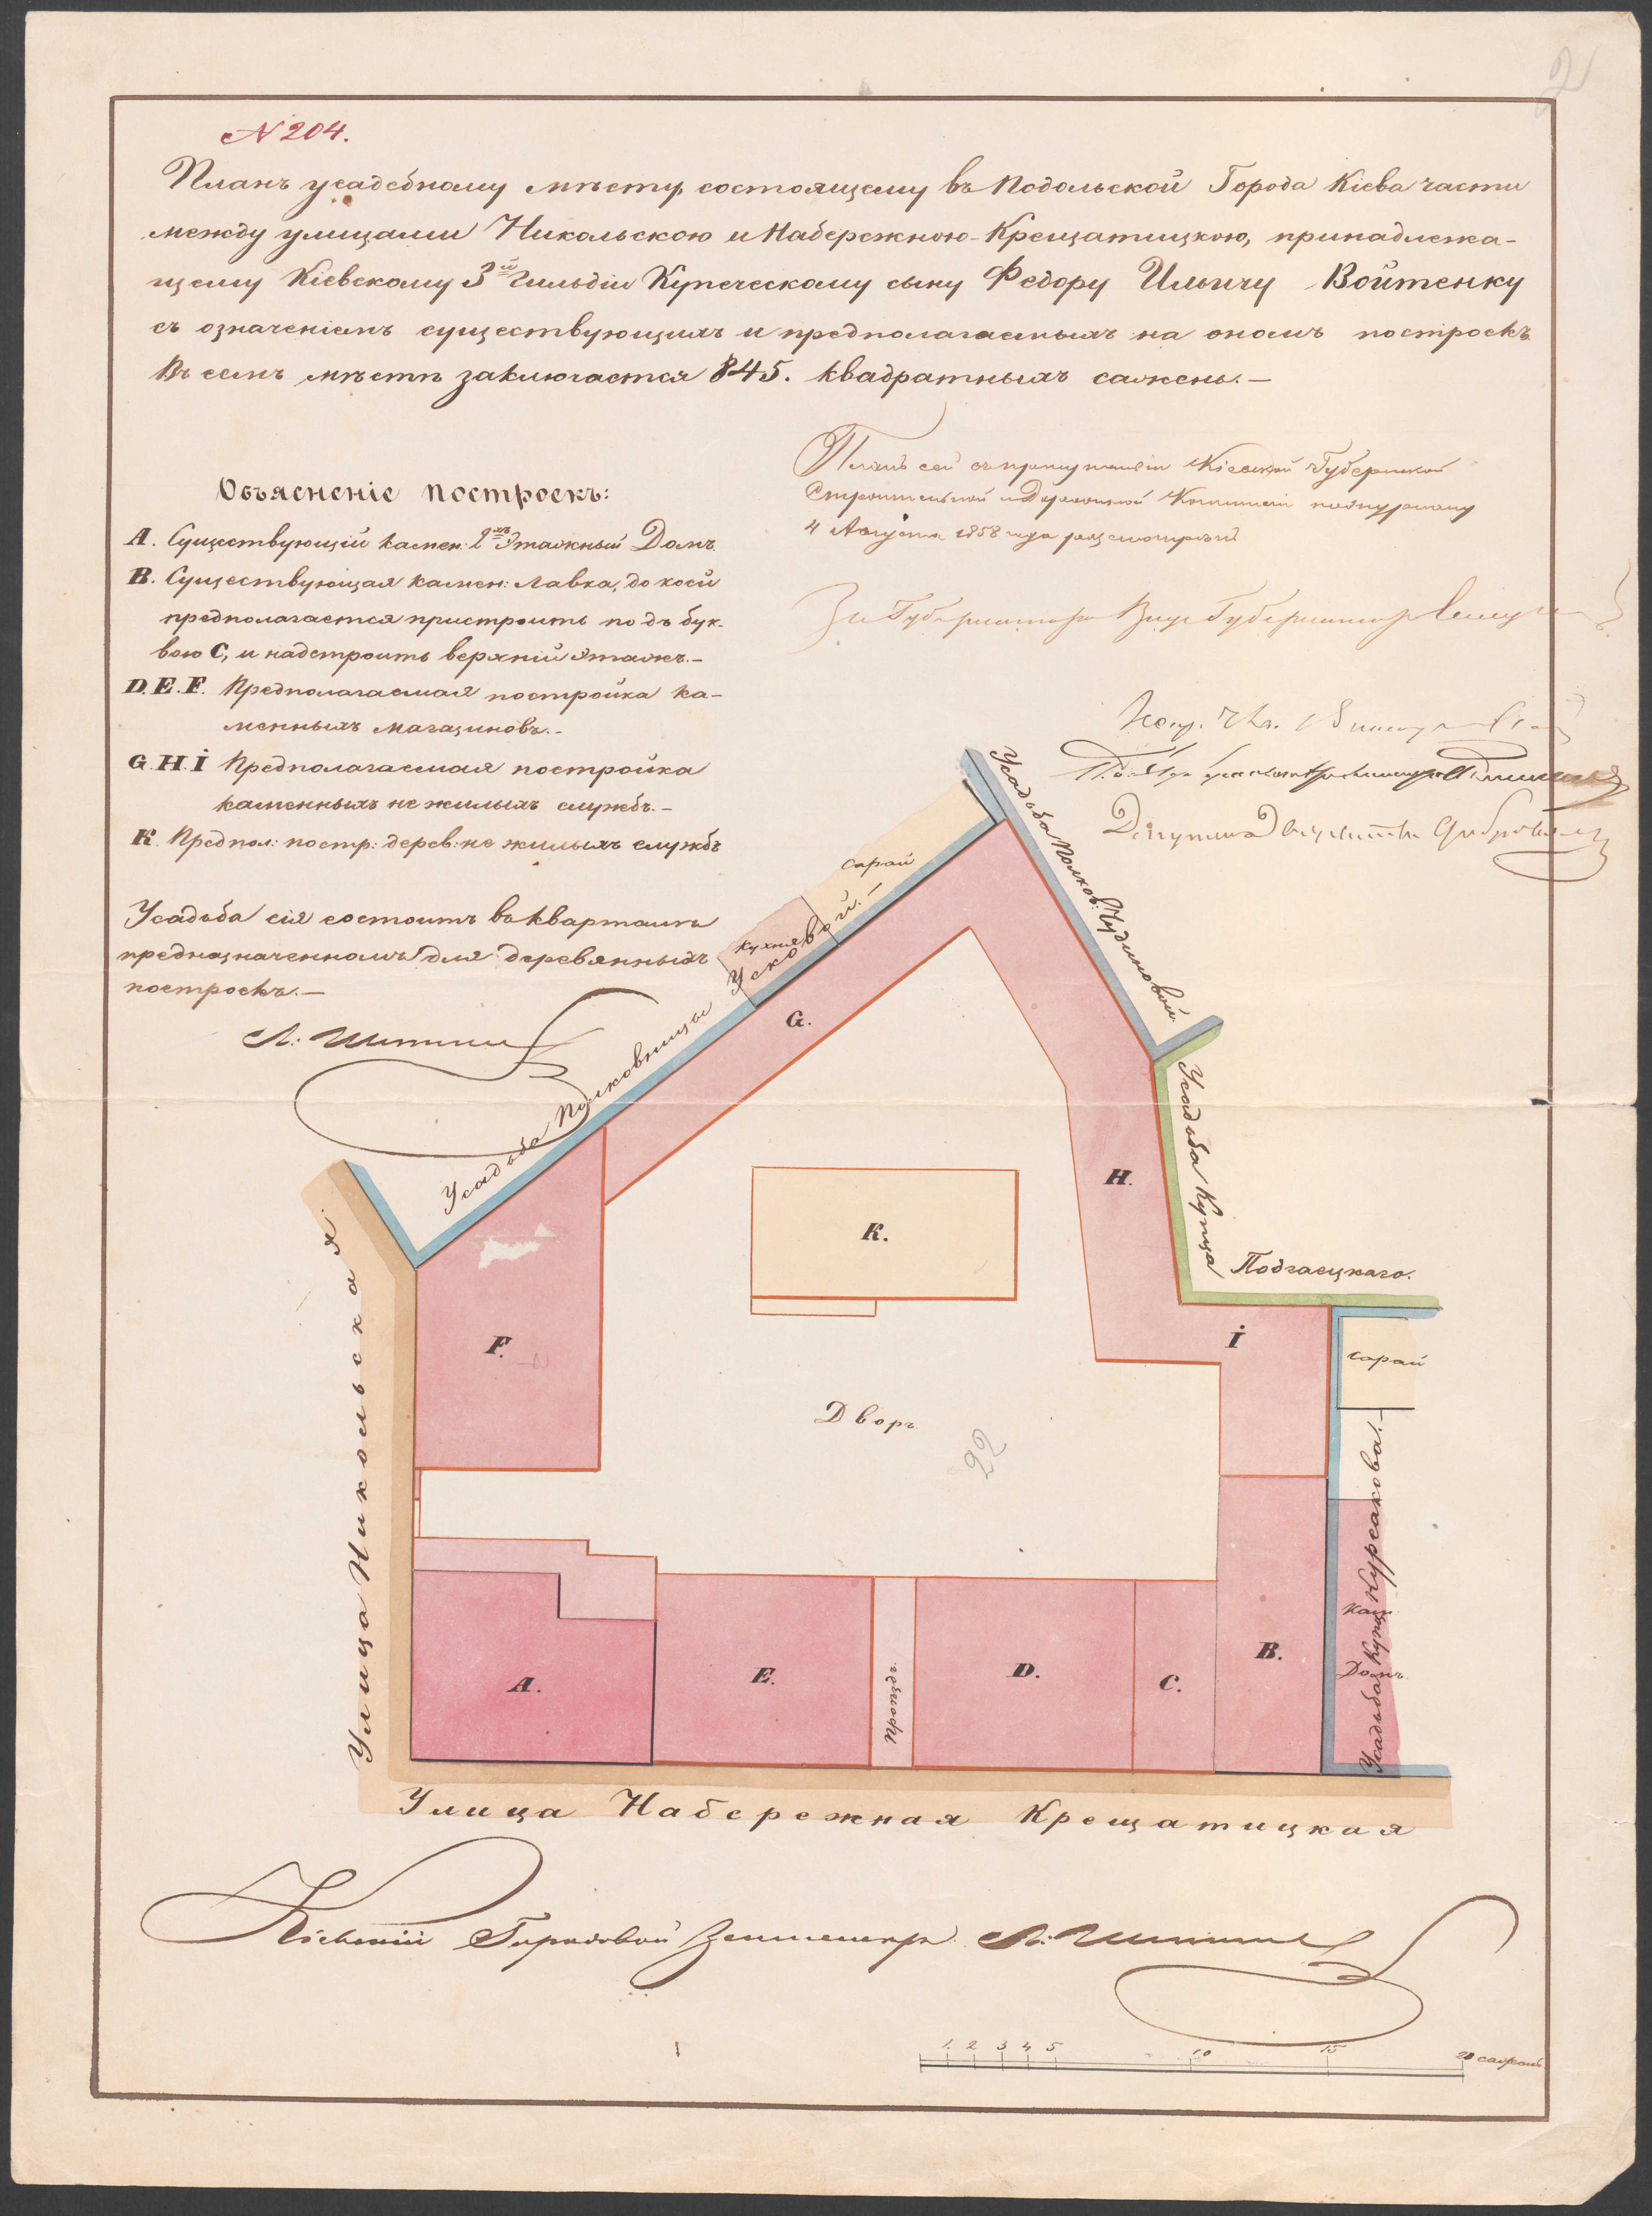 N 204.
Планъ усадебному мѣсту состоящему въ Подольской Города Кіева части
между улицами Никольскою и Набережною-Крещатицкою, принадлежа-
щему Кіевскому 3й Гильдіи Купеческому сыну Федору Ильичу Войтенку
съ означеніемъ существующихъ и предполагаемыхъ на ономъ построекъ.
Въ семъ мѣстѣ заключается 845. квадратныхъ сажень.—
Планъ сей съ Кіевской Губернской
Строительной и Дорожной Коммисіи по журналу
4 Августа 1858 года разсмотренъ
За Губернатора Вице Губернаторъ
Объясненіе построекъ:
A. Существующій камен: 2хъ Этажный Домъ.
B. Существующая камен: лавка, до коей
предполагается пристроить подъ бук-
вою C, и надстроить верхній этажъ.—
D.E.F. Предполагаемая постройка ка-
менныхъ магазиновъ.—
G.H.İ Предполагаемая постройка
каменныхъ не жилыхъ службъ.—
K. Предпол: постр: дерев: не жилыхъ службъ
Усадьба сія состоитъ въ кварталѣ
предназначенномъ для деревянныхъ
построекъ.—
Усадьба Полковницы Усковой.
Усадьба Полков: Чудиновой.
сарай
кухня
G.
Усадьба Купца
Подгаецкаго.
H.
K.
F.
İ
сарай
Дворъ.
22
Улица Никольская.
Усадьба Купц Курсакова.
Кам:
Домъ.
A.
E.
Проѣздъ
D.
C.
B.
Улица Набережная Крещатицкая
Кіевскій Городовой Землемеръ
1 2 3 4 5 10 15 20 сажень
2